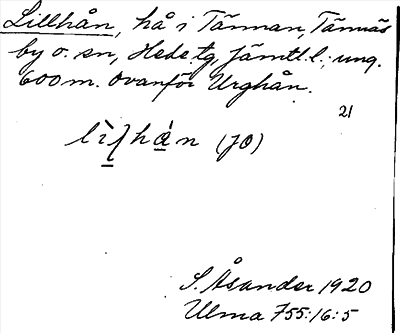 Lillhån, hå i Tännan, Tännäs
by o. sn, Hede tg, Jämtl. l.; ung.
600 m. ovanför Urghån.
21
lìl̠hån (JO)
S. Åsander 1920
Ulma 755:16:5